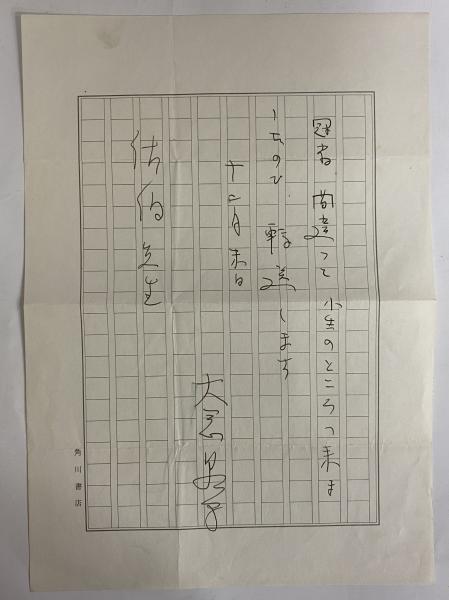 間違って小生のところへ来ま
したので 転送します
十二月末日
大
佐伯先生
角川書店